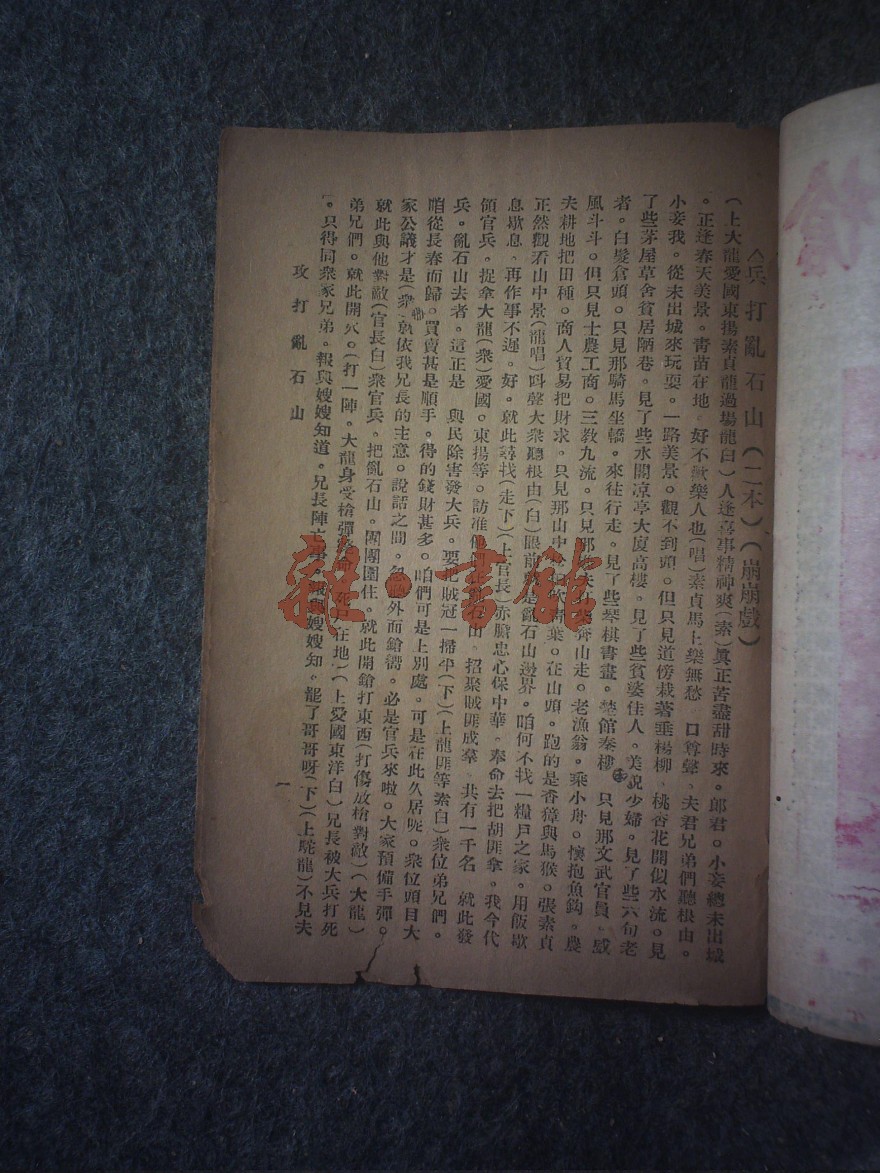 兵打亂石山（二本）（崩崩戲）
（上大龍愛國東揚素貞龍過場龍白）人逢喜事精神爽（素）眞正苦盡甜時來。郎君。小妾總未出城
。正逢春天美景。青苗在地。好不歡樂人也（唱）素貞馬上樂無愁 口尊聲。夫君兄弟們聽根由。
小妾我。從未出城來玩耍。一路美景。觀不到頭。但只見道傍栽著垂楊柳。桃杏花開似水流。見
了些茅屋草舍貧居陋巷。見了些水閣凉亭大廈高樓。見了些貧婆佳人。美貌少婦。見了些六旬老
者。白髮倉頭。只見那騎馬坐轎。來往行走。見了些琴棋書畫。楚館秦樓。只見那文武官員。威
風斗斗。但只見士農工商。三教九流。只見那 夫打柴奔山走。老漁翁。乘小舟。懷抱魚鈎。農
夫耕地把田種。商人貿易把財求。只見那山中 葉。在山頭。跑的是香獐與馬猴。張素貞
正然觀看山中景（龍唱）呌聲大衆聽根由（白）眼前 是亂石山邊界。咱何不找一糧戸之家。用飯歇
息歇息。再作事不遲。好。就此尋找（走下）（上官長）赤膽忠心保中華。奉命去把胡匪拿。我今代
領官兵。捉拿大龍（衆）愛國。東揚等。訪准他們 石山。招聚賊匪成羣。共有一千名 就此發
兵。亂石山去者。這正是 與民除害發大兵。要把賊冠一掃平（下）（上龍匪等素白）衆位弟兄們。
咱從長春而歸。買賣甚是順手。得的錢財甚多。咱們可是上別處。可是在此久居呢。衆位頭目大
家公議才是（衆 就依我兄長的主意。說話之間。忽聽外面鎗嚮。必是官兵來啦。大家預備手彈。
就此與他對敵（官長白）衆官兵。把亂石山。團團圍住。就此開鎗打東西（打傷放槍對敵）（大龍）
弟兄們。就此開火。（打一陣。大龍身受槍彈 命 死尸在地）（上愛國東洋白）兄長被大兵打死
。只得同衆家兄弟。報與嫂嫂知道。兄長陣亡 報與嫂嫂知。罷了哥哥呀（下）（上駝龍）不見夫
攻打亂石山
一
雜·書館